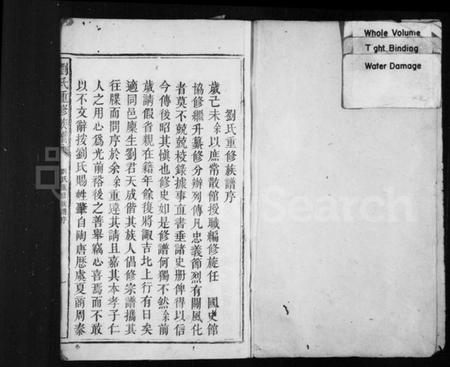 Whole Volume
Tight Binding
Water Damage
劉氏重修族譜序
歲己未余以庶常散館授職編修旋任 國史館
協修纔升纂修分辦列傳凡忠義節烈有關風化
者莫不兢兢校錄據事直書垂諸史册俾得以信
今傳後昭其愼也修史如是修譜何獨不然余前
歲請假省親在籍年餘後將諏吉北上行有日矣
適同邑廩生劉君天成偕其族人倡修宗譜攜其
往牒而問序於余余重違其請且嘉其本孝子仁
人之用心爲光前裕後之善舉竊心喜焉而不敢
以不文辭按劉氏賜姓肇自陶唐歷虞夏商周秦
劉氏重修族譜